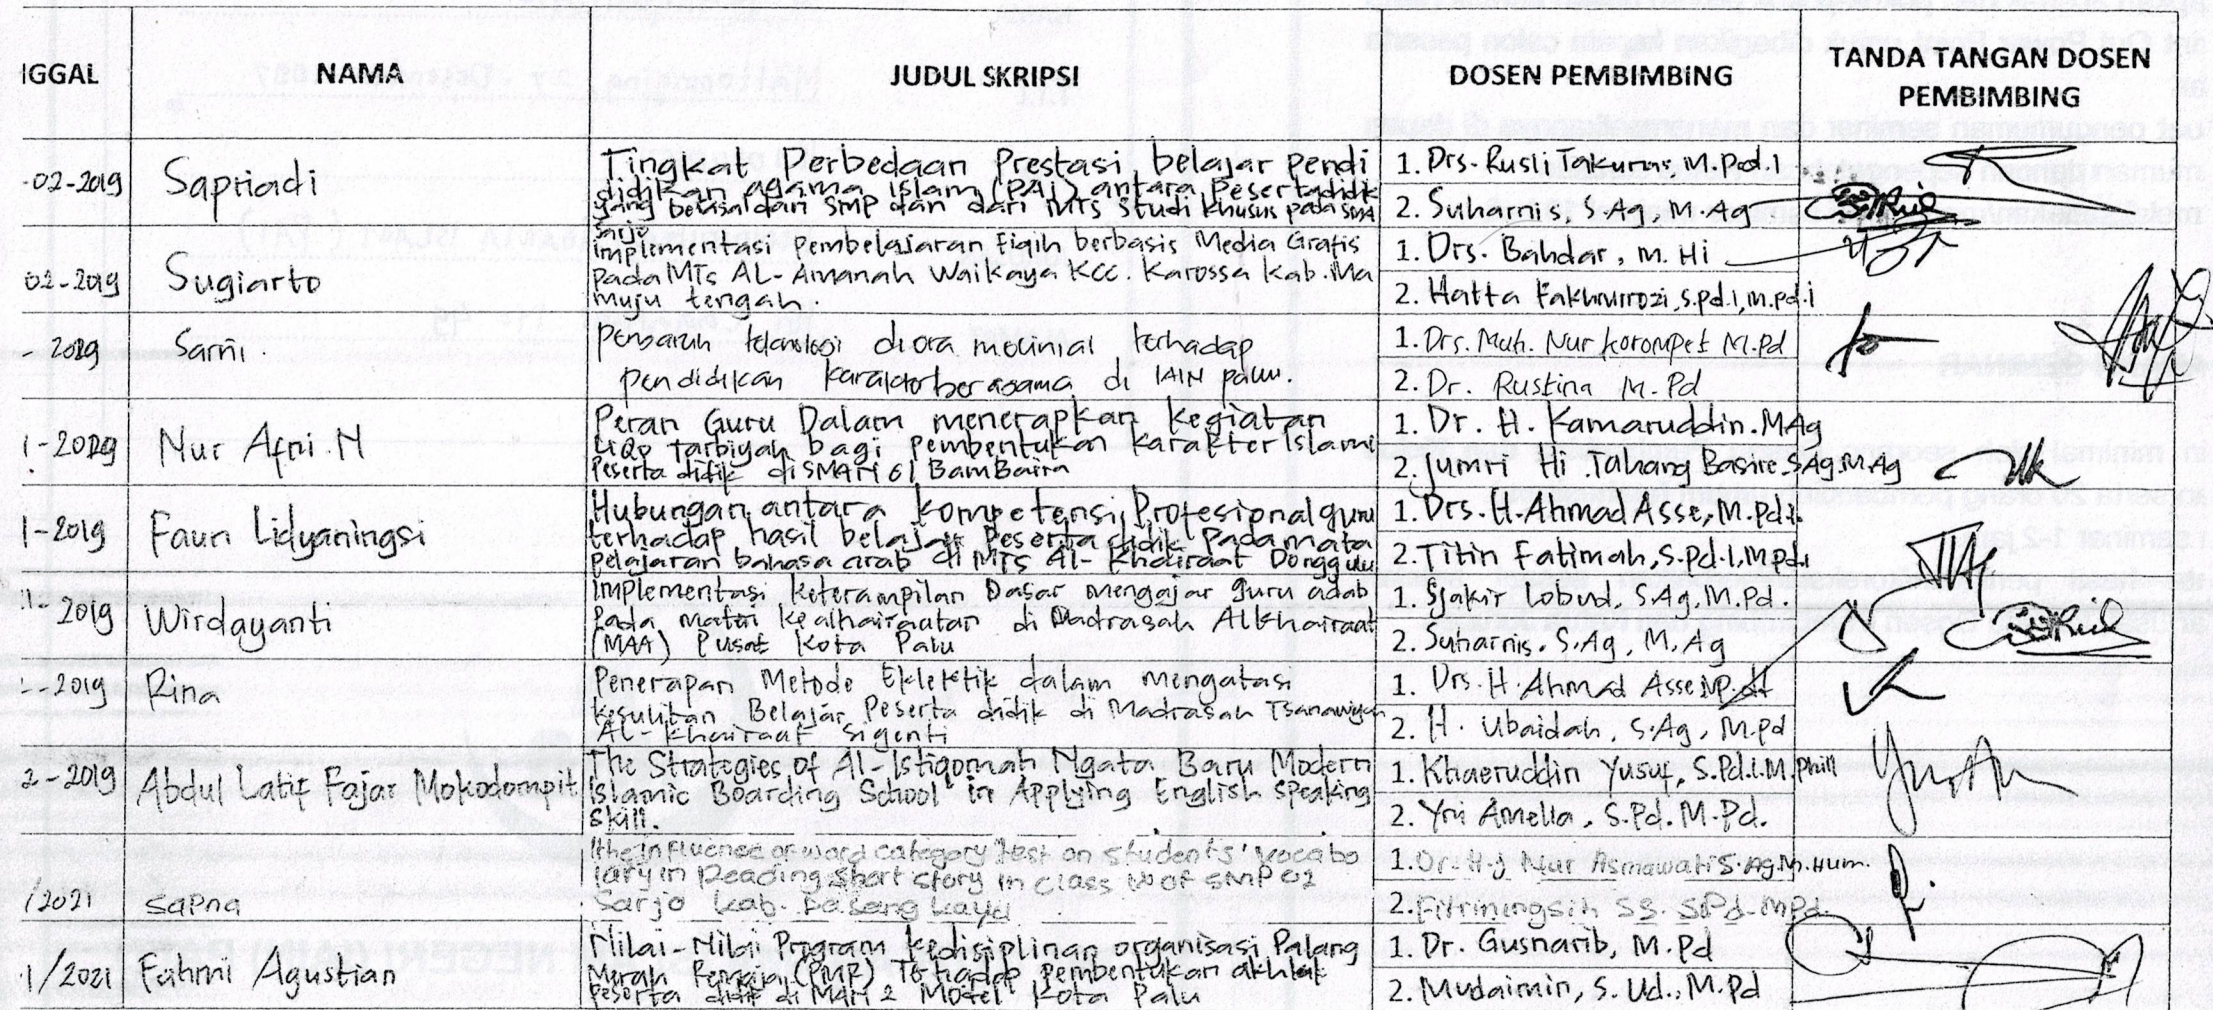 IGGAL NAMA JUDUL SKRIPSI DOSEN PEMBIMBING TANDA TANGAN DOSEN PEMBIMBING
-02-2019 Sapriadi
Tingkat Perbedaan Prestasi belajar pendi
didikan agama islam (PAI) antara Pesertadidik
yang berasal dari SMP dan dari MTS Studi khusus pada SMA
Sarjo
1. Drs. Rusli Takunas, M.Pd.I
2. Suharnis, S.Ag, M.Ag
02-2019 Sugiarto
implementasi Pembelajaran Fiqih berbasis Media Grafis
pada MTs AL-Amanah Waikaya Kec. Karossa Kab. Ma
muju tengah.
1. Drs. Bahdar, M. Hi
2. Hatta Fakhrurrozi, S.pd.I, M.pd.i
2019 Sarni
Pengaruh teknologi di era melinial terhadap
pendidikan karakter beragama di IAIN palu.
1. Drs. Muh. Nur Korompot M.Pd
2. Dr. Rustina M. Pd
1-2019 Nur Afni. N
Peran Guru Dalam menerapkan Kegiatan
LiQo Tarbiyah bagi Pembentukan Karakter Islami
Peserta didik di SMAN 01 BamBaira
1. Dr. H. Kamaruddin. MAg
2. Jumri Hi. Tahang Basire. S.Ag. M.Ag
1-2019 Fauri Lidyaningsi
Hubungan antara Kompetensi Profesional guru
terhadap hasil belajar Peserta didik Pada mata
pelajaran bahasa arab di MTs Al-Khairaat Donggulu
1. Drs. H. Ahmad Asse, M.Pd.I.
2. Titin Fatimah, S.Pd.I, M.Pd.I
1-2019 Wirdayanti
Implementasi Keterampilan Dasar mengajar guru adab
Pada materi kealhairaatan di Madrasah Alkhairaat
(MAA) Pusat Kota Palu
1. Sjakir Lobud, S.Ag, M.Pd.
2. Suharnis. S.Ag, M.Ag
1-2019 Rina
Penerapan Metode Eklektik dalam mengatasi
Kesulitan Belajar Peserta didik di Madrasah Tsanawiyah
AL-Khairaat Sigenti
1. Drs. H. Ahmad Asse,
2. H. Ubaidah, S.Ag, M.Pd
2-2019 Abdul Latif Fajar Mokodompit
The Strategies of Al-Istiqomah Ngata Baru Modern
Islamic Boarding School in Applying English Speaking
Skill.
1. Khaeruddin Yusuf, S.Pd.I. M.Phill
2. Yni Amelia, S.Pd. M.Pd.
/2021 sapna
the influence of word category test on students' vocabo
lary in Reading short story in class of SMP 02
Sarjo kab. Pasang kayu
1. Dr. Hj Nur Asmawati S.Ag. M.Hum.
2. Fitriningsih SS. S.Pd. M.Pd.
1/2021 Fahmi Agustian
Nilai-Nilai Program Kedisiplinan organisasi Palang
Merah Remaja (PMR) Terhadap Pembentukan akhlak
Peserta didik di MAN 2 Model Kota Palu
1. Dr. Gusnarib, M.Pd
2. Mudaimin, S. Ud., M.Pd